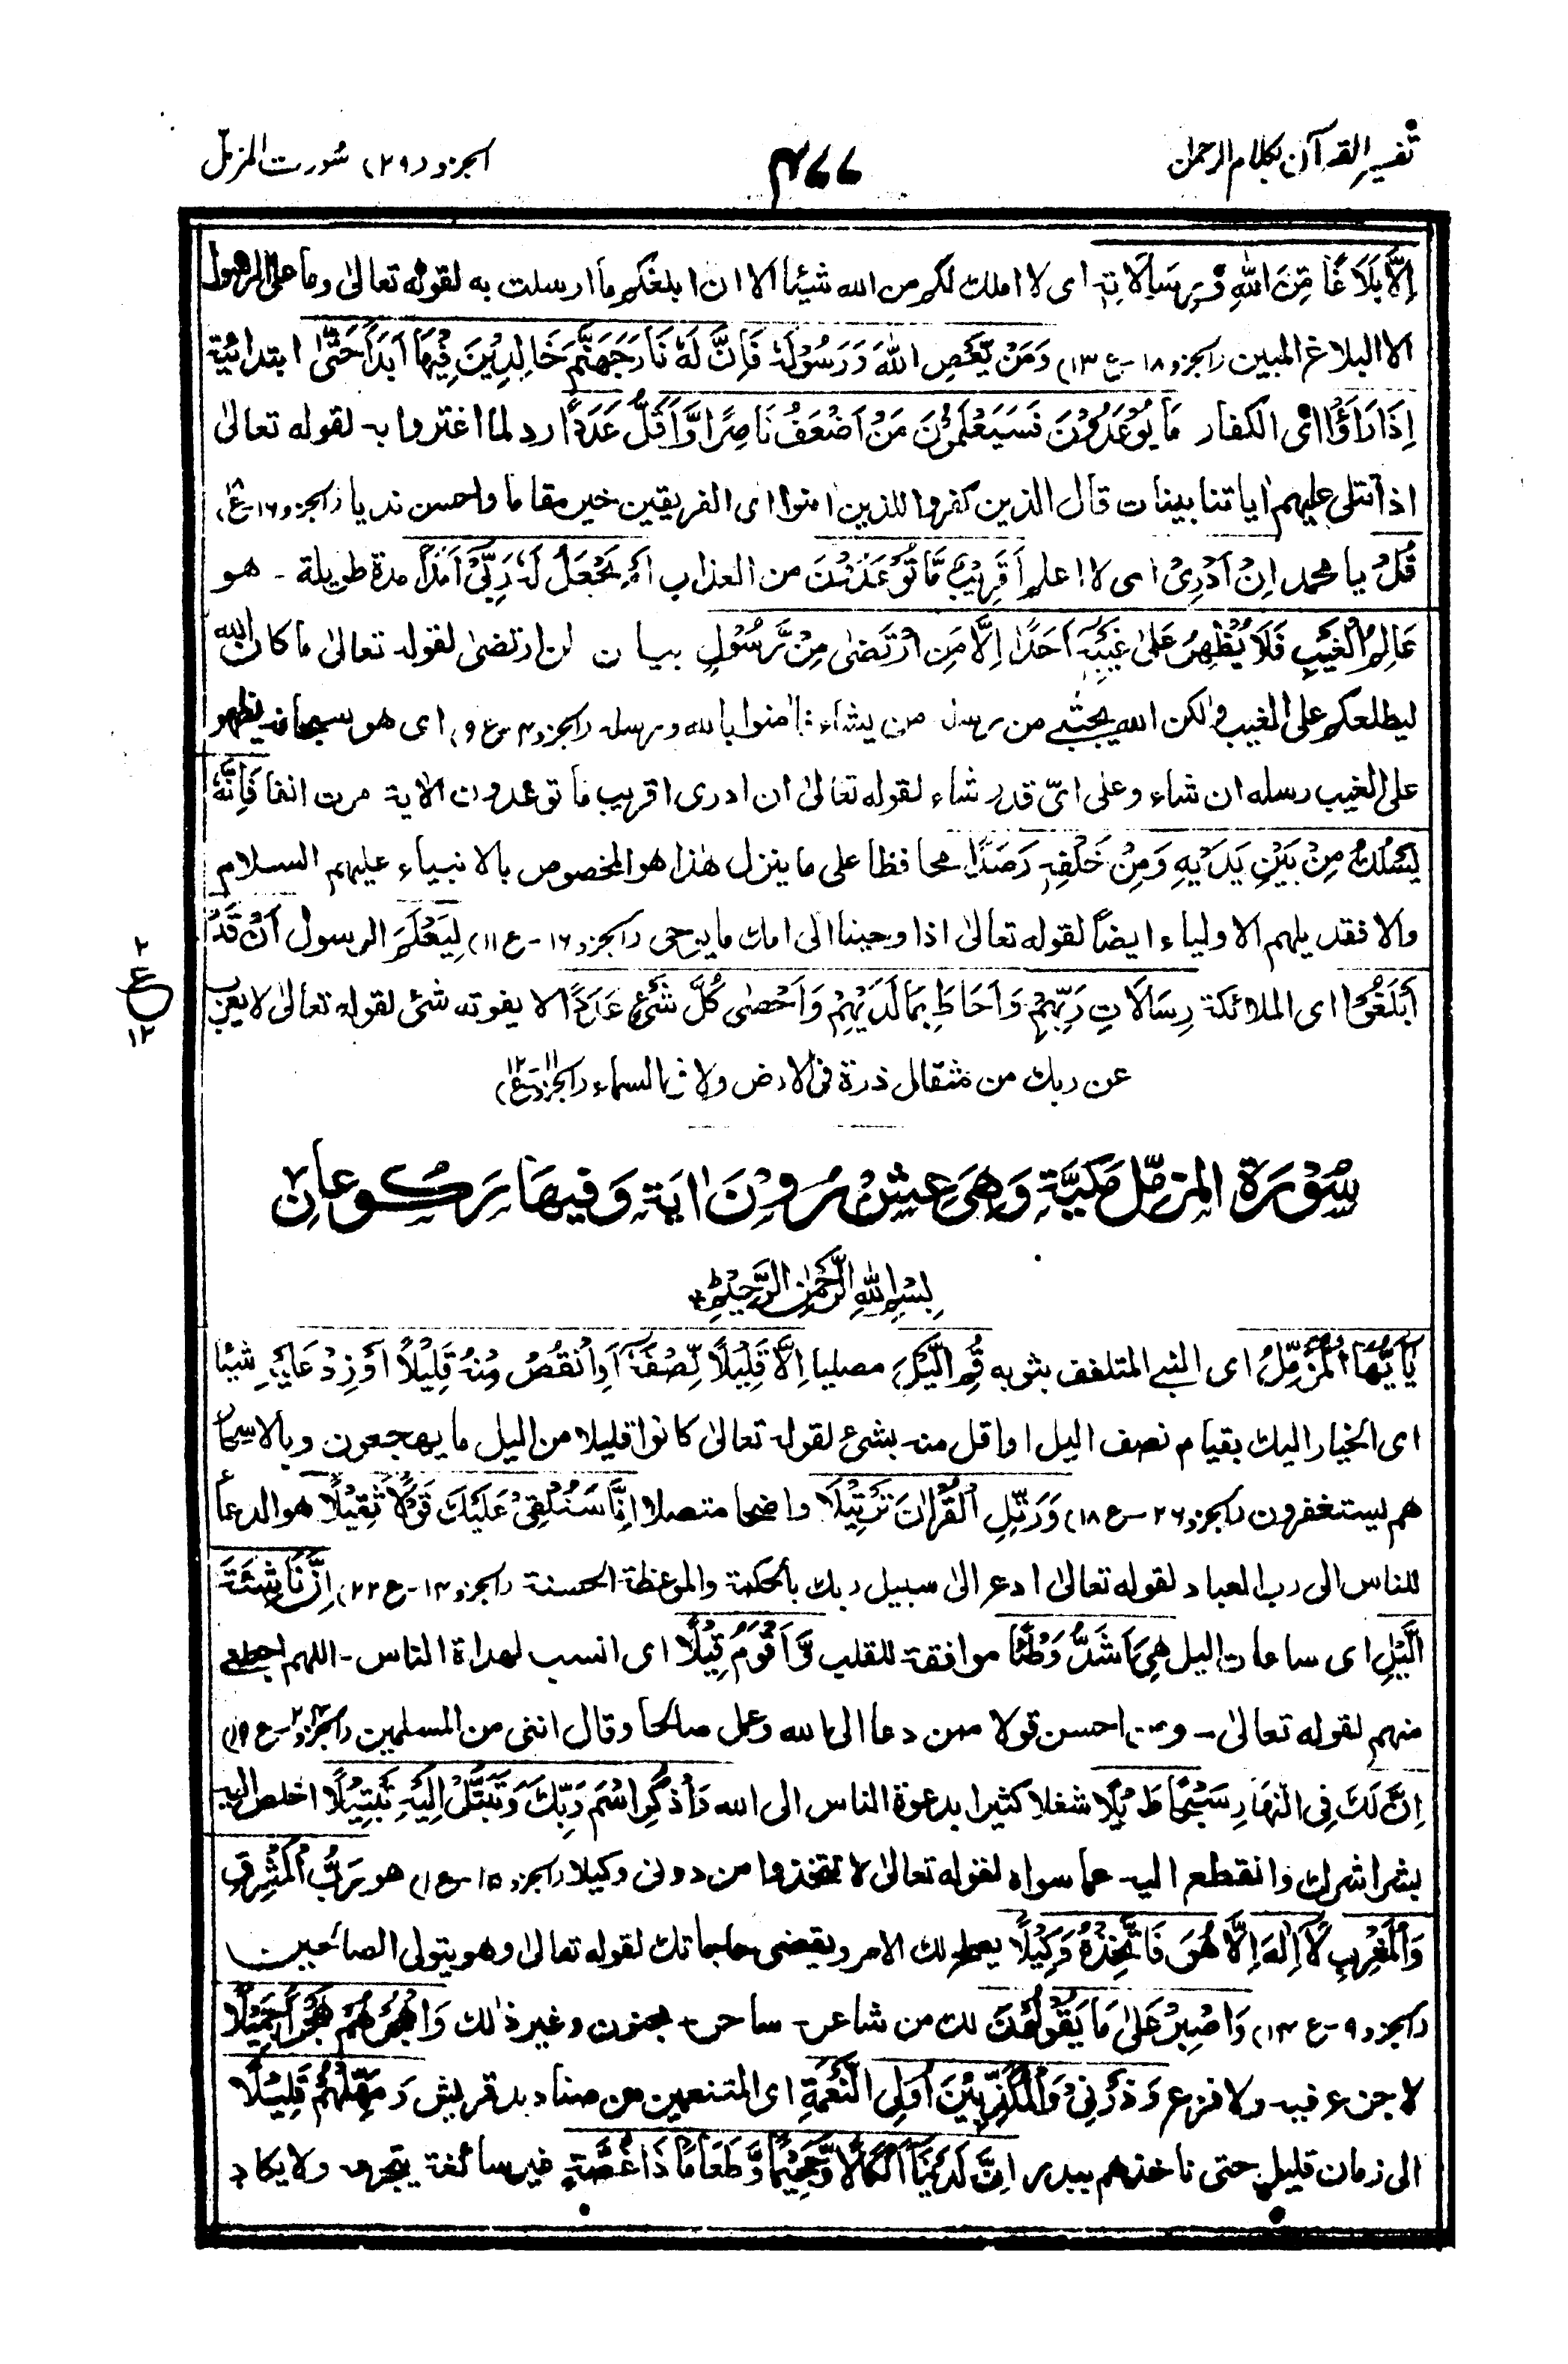 تفسير القرآن بكلام الرحمن ٣٧٧ الجزو (٢٩) سورت المزمل
اِلَّا بَلَاغًا مِّنَ اللّٰهِ وَرِسَالَاتِهٖ اى لا املك لكم من الله شيئا الا ان ابلغكم ما ارسلت به لقوله تعالىٰ وما على الرسول
الا البلاغ المبين (الجزو ١٨-ع ١٣) وَمَنْ يَّعْصِ اللّٰهَ وَرَسُوْلَهٗ فَاِنَّ لَهٗ نَارَ جَهَنَّمَ خَالِدِيْنَ فِيْهَا اَبَدًا حَتّٰى ابتدائية
اِذَا رَاَوْا اى الكفار مَا يُوْعَدُوْنَ فَسَيَعْلَمُوْنَ مَنْ اَضْعَفُ نَاصِرًا وَّاَقَلُّ عَدَدًا رد لما اغتروا به لقوله تعالىٰ
اذا تتلى عليهم اياتنا بينات قال الذين كفروا للذين امنوا اى الفريقين خير مقاما واحسن نديا (الجزو ١٦-ع)
قُلْ يا محمد اِنْ اَدْرِىْ اى لا اعلم اَقَرِيْبٌ مَّا تُوْعَدُوْنَ من العذاب اَمْ يَجْعَلُ لَهٗ رَبِّىْ اَمَدًا مدة طويلة - هو
عَالِمُ الْغَيْبِ فَلَا يُظْهِرُ عَلىٰ غَيْبِهٖ اَحَدًا اِلَّا مَنِ ارْتَضىٰ مِنْ رَّسُوْلٍ بيان لمن ارتضىٰ لقوله تعالىٰ ما كان الله
ليطلعكم على الغيب ولكن الله يجتبى من رسله من يشاء فامنوا بالله ورسله (الجزو ٤-ع ٩) اى هو سبحانه يظهر
على الغيب رسله ان شاء وعلى اىّ قدر شاء لقوله تعالىٰ ان ادرى اقريب ما توعدون الاية مرت انفا فَاِنَّهٗ
يَسْلُكُ مِنْ بَيْنِ يَدَيْهِ وَمِنْ خَلْفِهٖ رَصَدًا محافظا على ما ينزل هٰذا هو المخصوص بالانبياء عليهم السلام
والا فقد يلهم الاولياء ايضاً لقوله تعالىٰ اذ اوحينا الى امك ما يوحى (الجزو ١٦-ع ١١) لِيَعْلَمَ الرسول اَنْ قَدْ
اَبْلَغُوْا اى الملائكة رِسَالَاتِ رَبِّهِمْ وَاَحَاطَ بِمَا لَدَيْهِمْ وَاَحْصٰى كُلَّ شَىْءٍ عَدَدًا لا يفوته شئ لقوله تعالىٰ لا يعزب
٢
ع
١٢
عن ربك من مثقال ذرة فى الارض ولا فى السماء (الجزو ١١-ع ١٢)
سُوْرَةُ الْمُزَّمِّلِ مَكِّيَّةٌ وَهِىَ عِشْرُوْنَ اٰيَةً وَفِيْهَا رُكُوْعَانِ
بِسْمِ اللهِ الرَّحْمٰنِ الرَّحِيْمِ
يَاَيُّهَا الْمُزَّمِّلُ اى النبى المتلفف بثوبه قُمِ الَّيْلَ مصليا اِلَّا قَلِيْلًا نِّصْفَهٗ اَوِ انْقُصْ مِنْهُ قَلِيْلًا اَوْ زِدْ عَلَيْهِ شيئا
اى الخيار اليك بقيام نصف اليل او اقل منه بشئ لقوله تعالىٰ كانوا قليلا من اليل ما يهجعون وبالاسحار
هم يستغفرون (الجزو ٢٦-ع ١٨) وَرَتِّلِ الْقُرْاٰنَ تَرْتِيْلًا واضحا متصلا اِنَّا سَنُلْقِىْ عَلَيْكَ قَوْلًا ثَقِيْلًا هو الدعاء
للناس الى رب العباد لقوله تعالىٰ ادع الىٰ سبيل ربك بالحكمة والموعظة الحسنة (الجزو ١٤-ع ٢٢) اِنَّ نَاشِئَةَ
الَّيْلِ اى ساعات اليل هِىَ اَشَدُّ وَطْئًا موافقة للقلب وَّاَقْوَمُ قِيْلًا اى انسب لهداة الناس - اللهم اجعلنى
منهم لقوله تعالىٰ - ومن احسن قولا ممن دعا الى الله وعمل صالحا وقال اننى من المسلمين (الجزو ٢٤-ع ١٩)
اِنَّ لَكَ فِى النَّهَارِ سَبْحًا طَوِيْلًا شغلا كثيرا بدعوة الناس الى الله وَاذْكُرِ اسْمَ رَبِّكَ وَتَبَتَّلْ اِلَيْهِ تَبْتِيْلًا اخلص اليه
بشراشرك وانقطع اليه عما سواه لقوله تعالىٰ لا تتخذوا من دونى وكيلا (الجزو ١٥-ع ١) هو رَبُّ الْمَشْرِقِ
وَالْمَغْرِبِ لَا اِلٰهَ اِلَّا هُوَ فَاتَّخِذْهُ وَكِيْلًا لك الامر ويقضى حاجاتك لقوله تعالىٰ وهو يتولى الصالحين
(الجزو ٩-ع ١٤) وَاصْبِرْ عَلىٰ مَا يَقُوْلُوْنَ لك من شاعر - ساحر - مجنون وغير ذٰلك وَاهْجُرْهُمْ هَجْرًا جَمِيْلًا
لا جزع فيه ولا فزع وَذَرْنِىْ وَالْمُكَذِّبِيْنَ اُولِى النَّعْمَةِ اى المتنعمين من صناديد قريش وَمَهِّلْهُمْ قَلِيْلًا
الى زمان قليل حتى ناخذهم ببدر اِنَّ لَدَيْنَا اَنْكَالًا وَّجَحِيْمًا وَّطَعَامًا ذَا غُصَّةٍ غير سائغة يتجرعه ولا يكاد